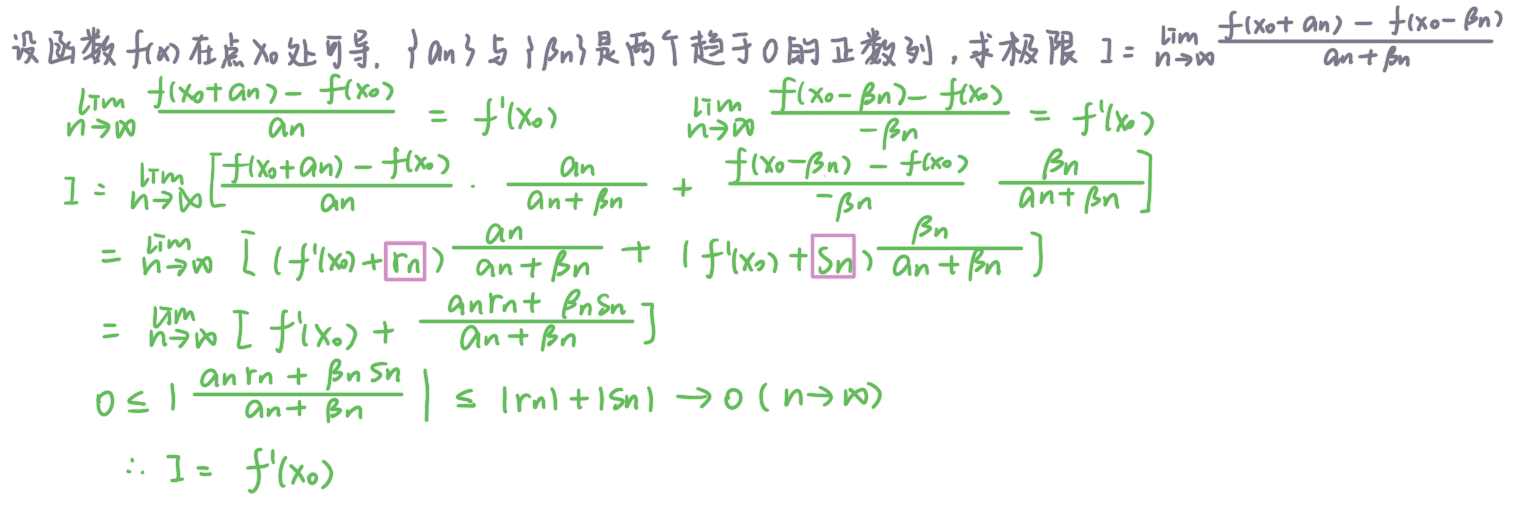 设函数 f(x) 在点 x₀ 处可导, {αn} 与 {βn} 是两个趋于 0 的正数列, 求极限 I = lim n→∞ (f(x₀+αn) − f(x₀−βn)) / (αn+βn)
lim n→∞ (f(x₀+αn) − f(x₀)) / αn = f'(x₀)    lim n→∞ (f(x₀−βn) − f(x₀)) / −βn = f'(x₀)
I = lim n→∞ [ (f(x₀+αn) − f(x₀)) / αn · αn / (αn+βn) + (f(x₀−βn) − f(x₀)) / −βn  βn / (αn+βn) ]
= lim n→∞ [ (f'(x₀)+rn) αn / (αn+βn) + (f'(x₀)+sn) βn / (αn+βn) ]
= lim n→∞ [ f'(x₀) + (αnrn + βnsn) / (αn+βn) ]
0 ≤ | (αnrn + βnsn) / (αn+βn) | ≤ |rn|+|sn| → 0 (n→∞)
∴ I = f'(x₀)